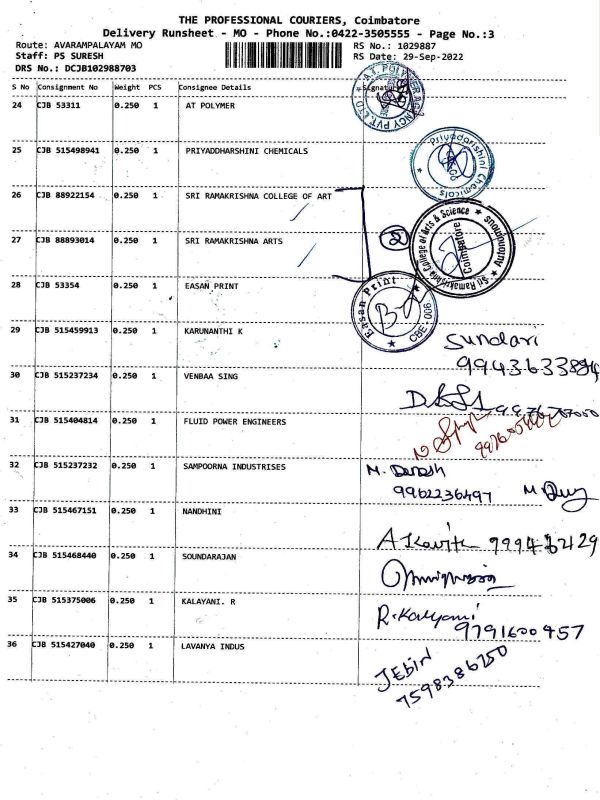 THE PROFESSIONAL COURIERS, Coimbatore
Delivery Runsheet - MO - Phone No.:0422-3505555 - Page No.:3
Route: AVARAMPALAYAM MO
RS No.: 1029887
Staff: PS SURESH
RS Date: 29-Sep-2022
DRS No.: DCJB102988703
S No Consignment No Weight PCS Consignee Details Signature
24 CJB 53311 0.250 1 AT POLYMER
A.T. POLYMER AGENCY PVT. LTD.
25 CJB 515498941 0.250 1 PRIYADDHARSHINI CHEMICALS
Priyadarishini Chemicals
26 CJB 88922154 0.250 1 SRI RAMAKRISHNA COLLEGE OF ART
27 CJB 88893014 0.250 1 SRI RAMAKRISHNA ARTS
2
Sri Ramakrishna College of Arts & Science
Autonomous
Coimbatore
28 CJB 53354 0.250 1 EASAN PRINT
Easan Print
CBE - 006
29 CJB 515459913 0.250 1 KARUNANTHI K
Sundari
30 CJB 515237234 0.250 1 VENBAA SING
31 CJB 515404814 0.250 1 FLUID POWER ENGINEERS
32 CJB 515237232 0.250 1 SAMPOORNA INDUSTRISES
M. Danesh
9962236497
33 CJB 515467151 0.250 1 NANDHINI
34 CJB 515468440 0.250 1 SOUNDARAJAN
35 CJB 515375006 0.250 1 KALAYANI. R
R. Kalyani
9791600457
36 CJB 515427040 0.250 1 LAVANYA INDUS
JEBIN
7598386750